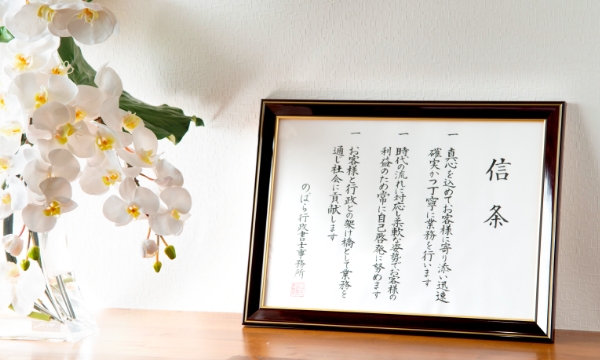 信条
一 真心を込めてお客様に寄り添い迅速
確実かつ丁寧に業務を行います
一 時代の流れに対応し柔軟な姿勢でお客様の
利益のため常に自己啓発に努めます
一 お客様と行政との架け橋として業務を
通じ社会に貢献します
のばら行政書士事務所